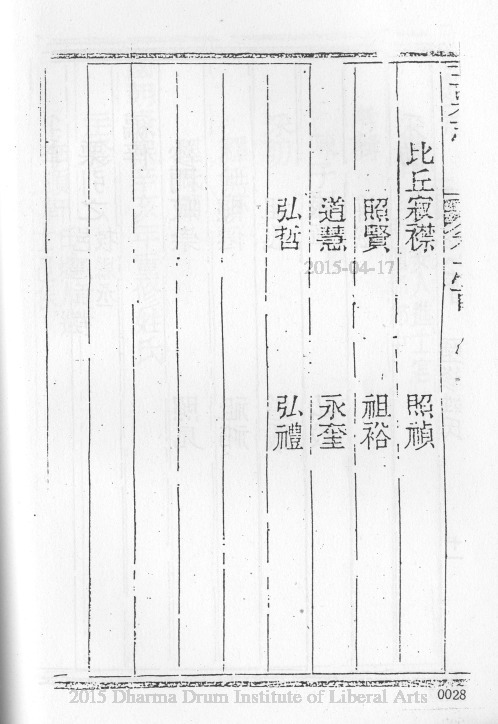 比丘寂襟 照禎
照賢 祖裕
道慧 永奎
弘哲 弘禮
2015-04-17
2015 Dharma Drum Institute of Liberal Arts
0028